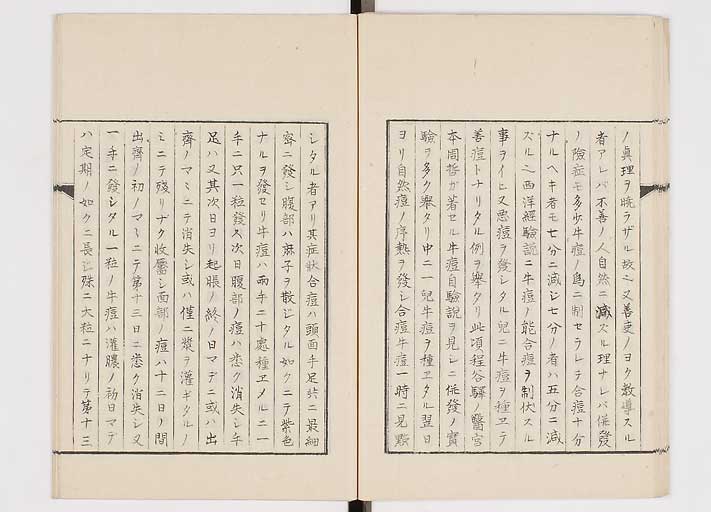 ノ眞理ヲ暁ラザル故也又善吏ノヨク敎導スル
者アレバ不善ノ人自然ニ減ズル理ナレバ併發
ノ險症モ多少牛痘ノ爲ニ制セラレテ合痘十分
ナルヘキ者モ七分ニ減ジ七分ノ者ハ五分ニ減
ズル也西洋經驗説ニ牛痘ノ能合痘ヲ制伏スル
事ヲイヒ又悪痘ヲ發シタル児ニ牛痘ヲ種ヱテ
善痘トナリタル例ヲ擧クリ此項程谷驛ノ醫宮
本周哲ガ著セル牛痘自驗説ヲ見シニ併發ノ實
驗ヲ多ク擧タリ中ニ一児牛痘ヲ種ヱタル翌日
ヨリ自然痘ノ序熱ヲ發シ合痘牛痘一時ニ見點
シタル者アリ其症狀合痘ハ頭面手足共ニ最細
密ニ發シ腹部ハ麻子ヲ散ジタル如クニテ紫色
ナルヲ發セリ牛痘ハ両手ニ十處種ヱタルニ一
手ニ只一粒發ス次日腹部ノ痘ハ悉ク消失シ手
足ハ又其次日ヨリ起脹ノ終ノ日マデニ或ハ出
齊ノマヽニテ消失シ或ハ僅ニ漿ヲ灌ギタルノ
ミニテ殘リナク收靨シ面部ノ痘ハ十二日ノ間
出齊ノ初ノマヽニテ第十三日ニ悉ク消失シ又
一手ニ發シタル一粒ノ牛痘ハ灌膿ノ初日マデ
ハ定期ノ如クニ長ジ殊ニ大粒ニナリテ第十三